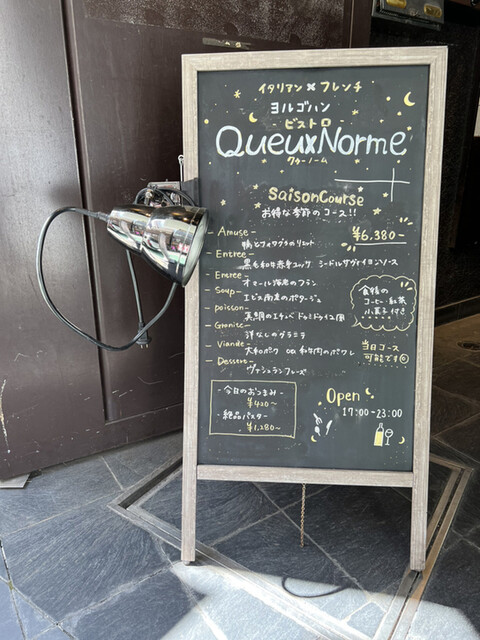 イタリアン × フレンチ
ヨルゴハン
- ビストロ -
QueuxNorme
クゥーノーム
SaisonCourse
お得な季節のコース!!
¥6.380-
Amuse -
鴨とフォワグラのリエット
Entree -
黒毛和牛赤身ユッケ シードルサヴァイヨンソース
Entree -
オマール海老のフラン
Soup -
エビス南瓜のポタージュ
poisson -
真鯛のエチュベ
Granite -
洋なしのグラニテ
Viande -
大和ポーク or 和牛肉のポワレ
Dessert -
ヴァシュランフレーズ
食後の
コーヒー・紅茶
小菓子付き
当日コース
可能です
- 今日のおつまみ -
¥420~
- 絶品パスタ -
¥1.280~
Open
17:00-23:00